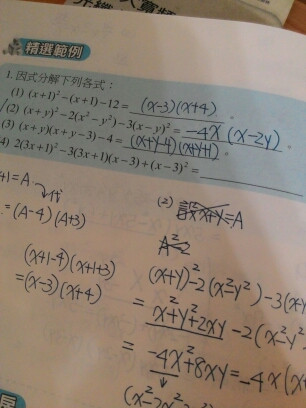 精選範例
1. 因式分解下列各式：
(1) (x+1)²−(x+1)−12= (x-3)(x+4) 。
(2) (x+y)²−2(x²−y²)−3(x−y)²= -4x(x-2y) 。
(3) (x+y)(x+y−3)−4= (x+y-4)(x+y+1) 。
4) 2(3x+1)²−3(3x+1)(x−3)+(x−3)²=
x+1=A
=(A-4)(A+3)
(x+1-4)(x+1+3)
=(x-3)(x+4)
(2) 設x+y=A
A²-2
(x+y)²-2(x²-y²)-3(x-y
= x²+y²+2xy -2(x²-y²
= -4x²+8xy=-4x(x